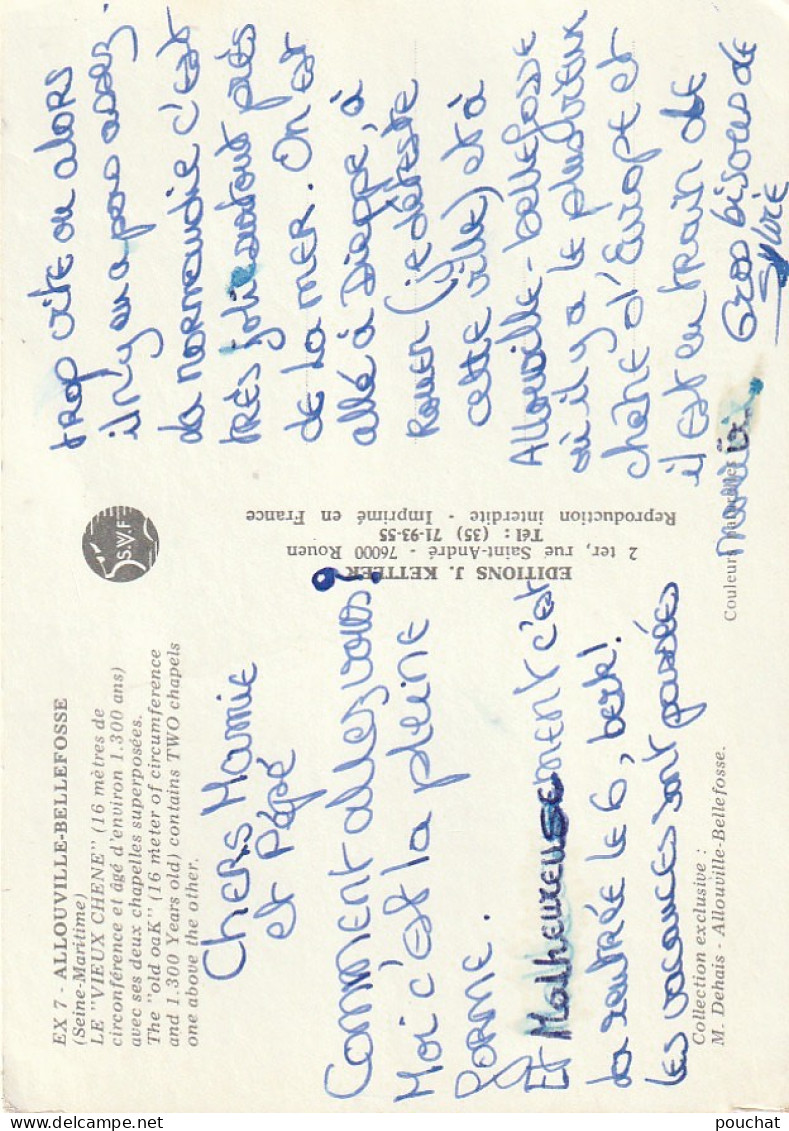 EX 7 - ALLOUVILLE-BELLEFOSSE
(Seine-Maritime)
LE "VIEUX CHENE" (16 mètres de
circonférence et âgé d'environ 1.300 ans)
avec ses deux chapelles superposées.
The "old oaK" (16 meter of circumference
and 1.300 Years old) contains TWO chapels
one above the other.
Chers Mamie
et Pépé
Comment allez vous?
Moi c'est la pleine
forme.
Et Malheureusement c'est
la rentrée le 6, berk!
les vacances sont passées
Collection exclusive :
M. Dehais - Allouville-Bellefosse.
S.V.F
EDITIONS J. KETTLER
2 ter, rue Saint-André - 76000 Rouen
Tél : (35) 71-93-55
Reproduction interdite - Imprimé en France
Couleurs naturelles
trop vite ou alors
il n'y en a pas assez.
La normandie c'est
très joli surtout près
de la mer. On est
allé à Dieppe, à
Rouen (je déteste
cette ville) et à
Allouville-bellefosse
où il y a le plus vieux
chêne d'Europe et
il est en train de
mourir.
Gros bisous de
Sylvie
pouchat